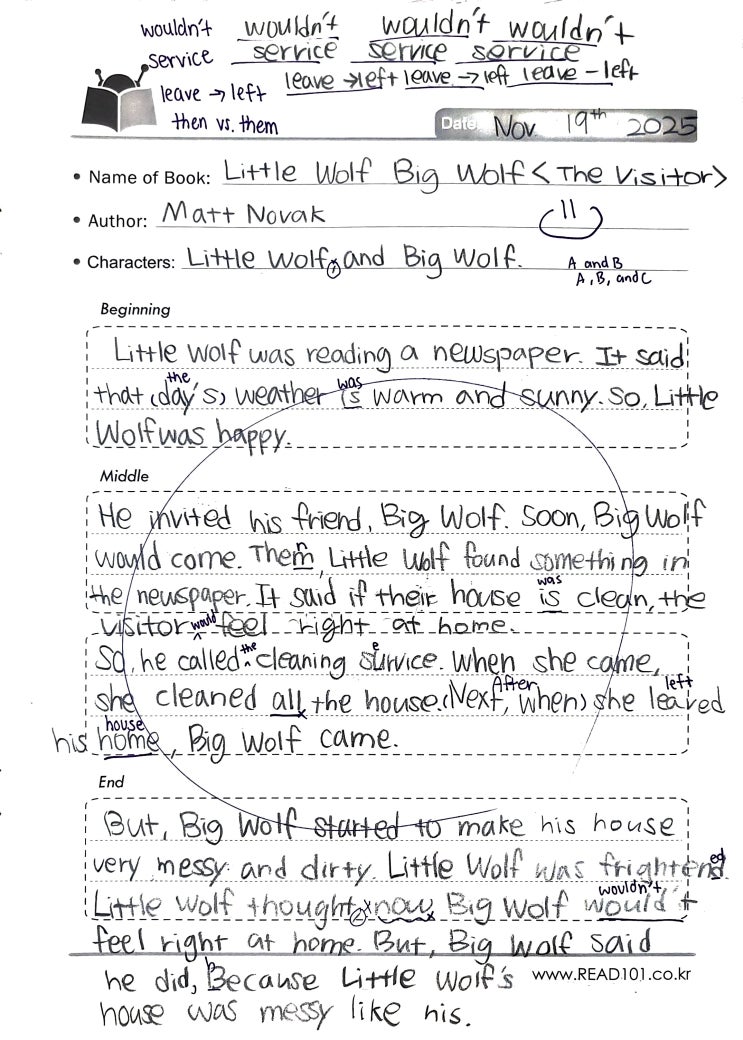 wouldn't wouldn't wouldn't wouldn't
service service service service
leave → left leave → left leave → left leave - left
then vs. them
Date Nov 19th 2025
• Name of Book: Little Wolf Big Wolf < The Visitor >
• Author: Matt Novak
• Characters: Little Wolf, and Big Wolf.
A and B
A, B, and C
Beginning
Little Wolf was reading a newspaper. It said
the was
that (day's) weather is warm and sunny. So, Little
Wolf was happy.
Middle
He invited his friend, Big Wolf. Soon, Big Wolf
n
would come. Them, Little Wolf found something in
was
the newspaper. It said if their house is clean, the
visitor would feel right at home.
the e
So, he called cleaning survice. When she came,
After left
she cleaned all the house. (Next, when) she leaved
house
his home, Big Wolf came.
End
But, Big Wolf started to make his house
ed
very messy and dirty. Little Wolf was frightend.
wouldn't
Little Wolf thought, now, Big Wolf would't
feel right at home. But, Big Wolf said
b
he did, Because Little Wolf's
www.READ101.co.kr
house was messy like his.